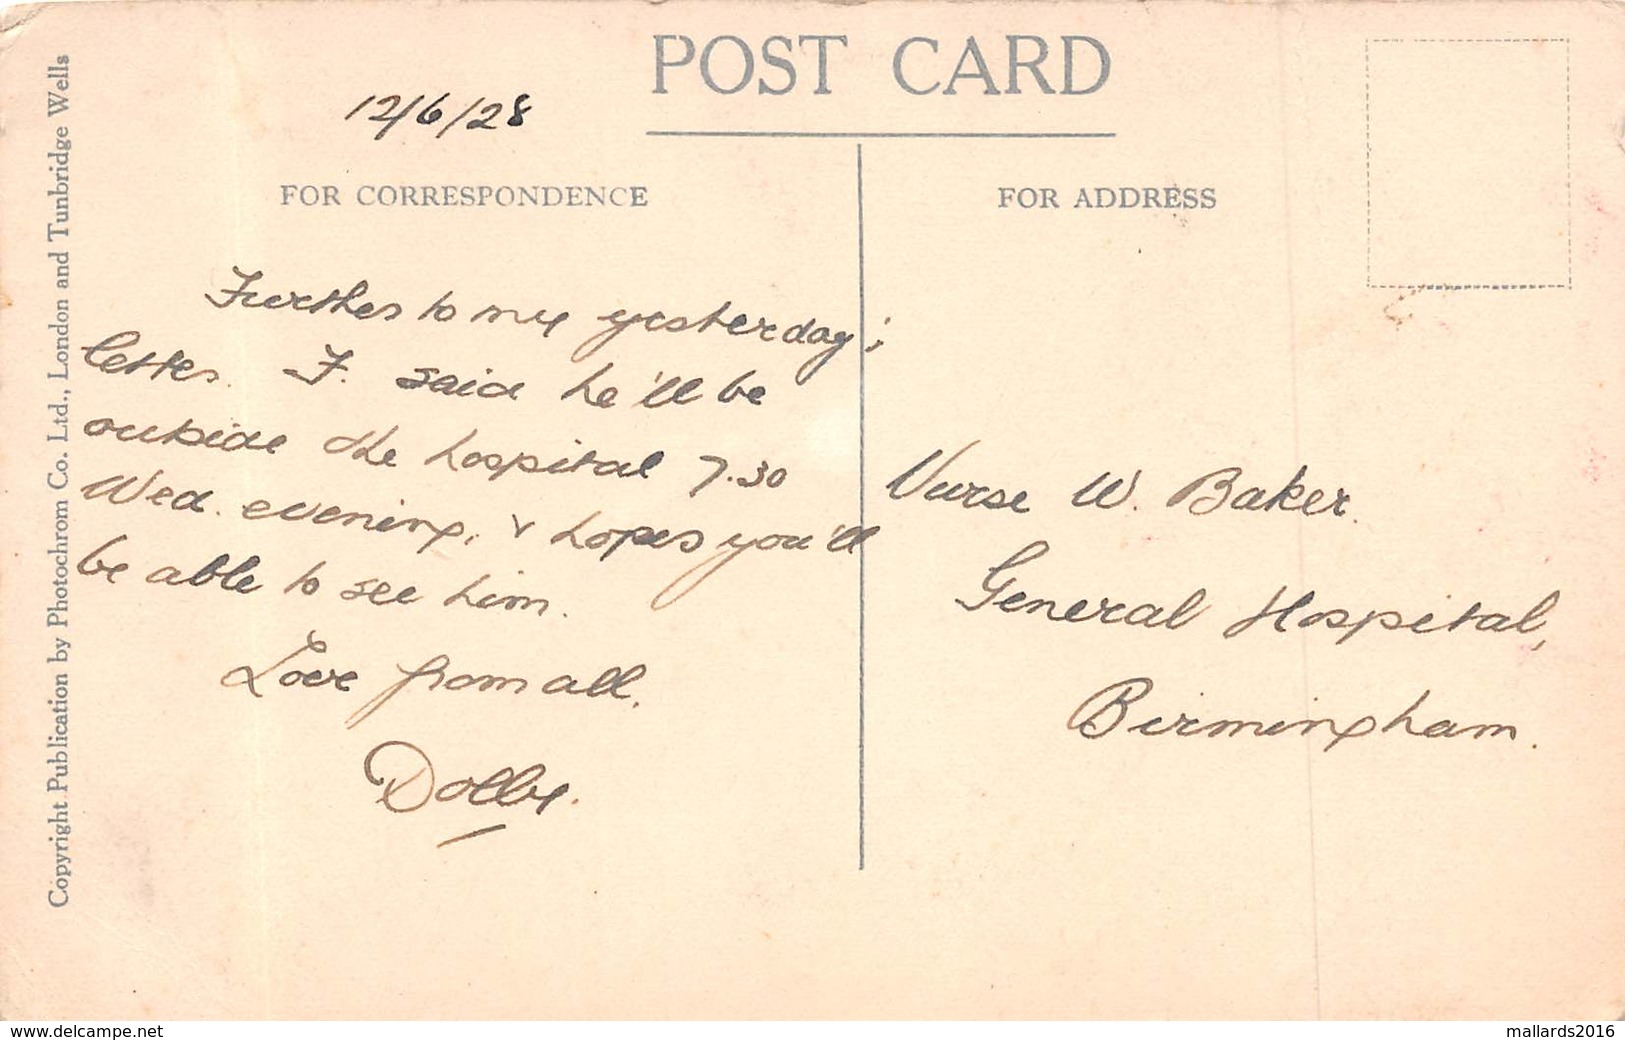 POST CARD
12/6/28
FOR CORRESPONDENCE
Further to my yesterday's
letter. F. said he'll be
outside the hospital 7.30
Wed. evening, & hopes you'll
be able to see him.
Love from all.
Dolly.
FOR ADDRESS
Nurse W. Baker.
General Hospital,
Birmingham.
Copyright Publication by Photochrom Co. Ltd., London and Tunbridge Wells
www.delcampe.net
mallards2016